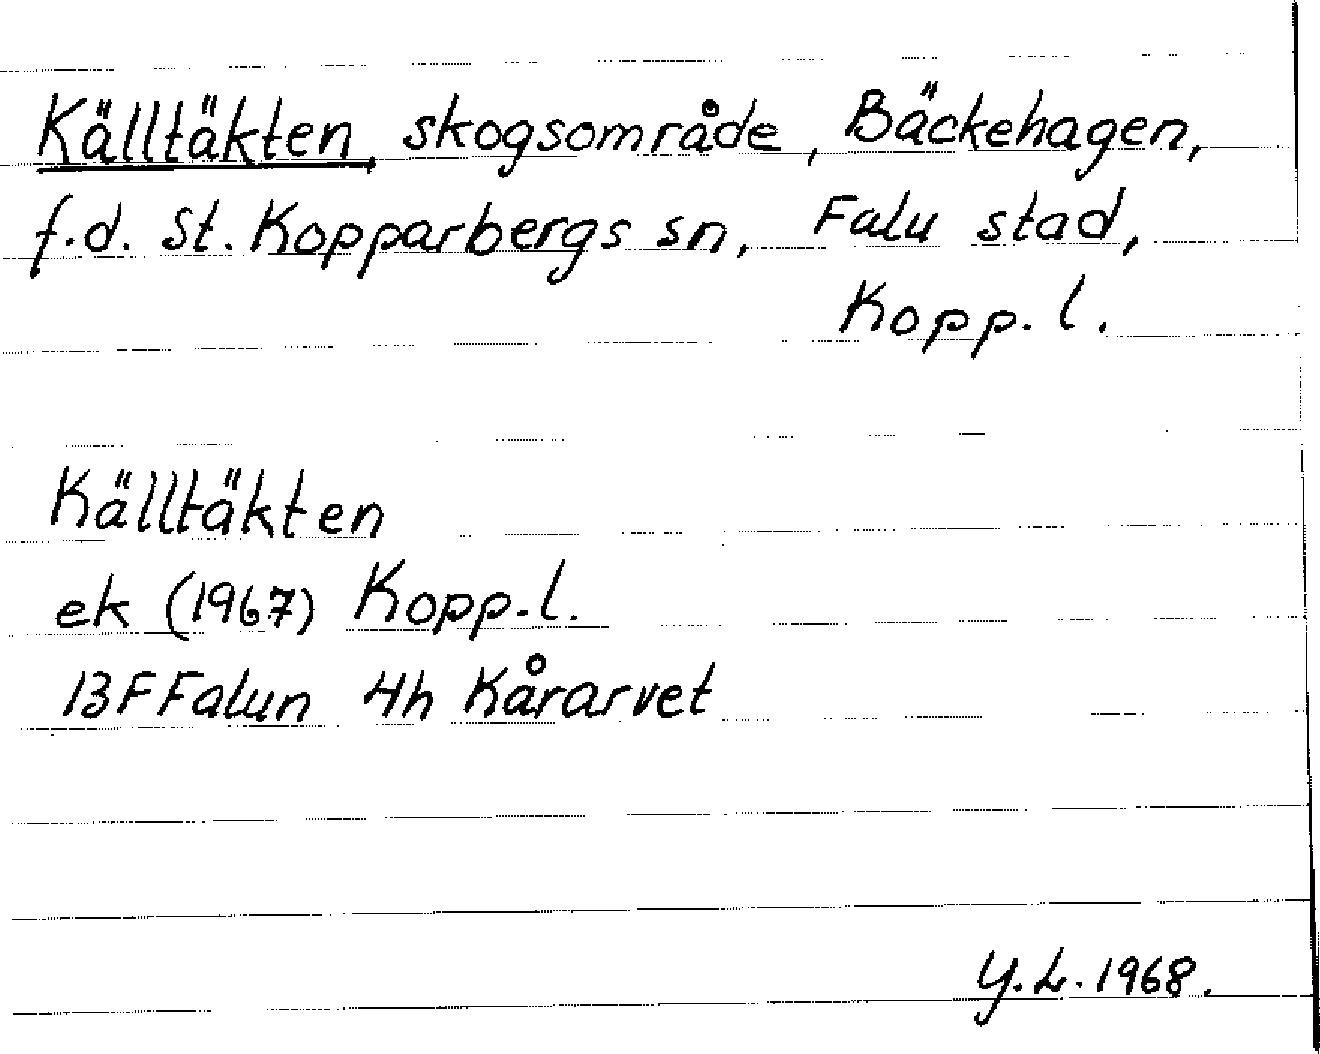 Källtäkten, skogsområde, Bäckehagen,
f.d. St. Kopparbergs sn, Falu stad,
Kopp. l.
Källtäkten
ek (1967) Kopp. l.
13F Falun 4h Kårarvet
Y. L. 1968.